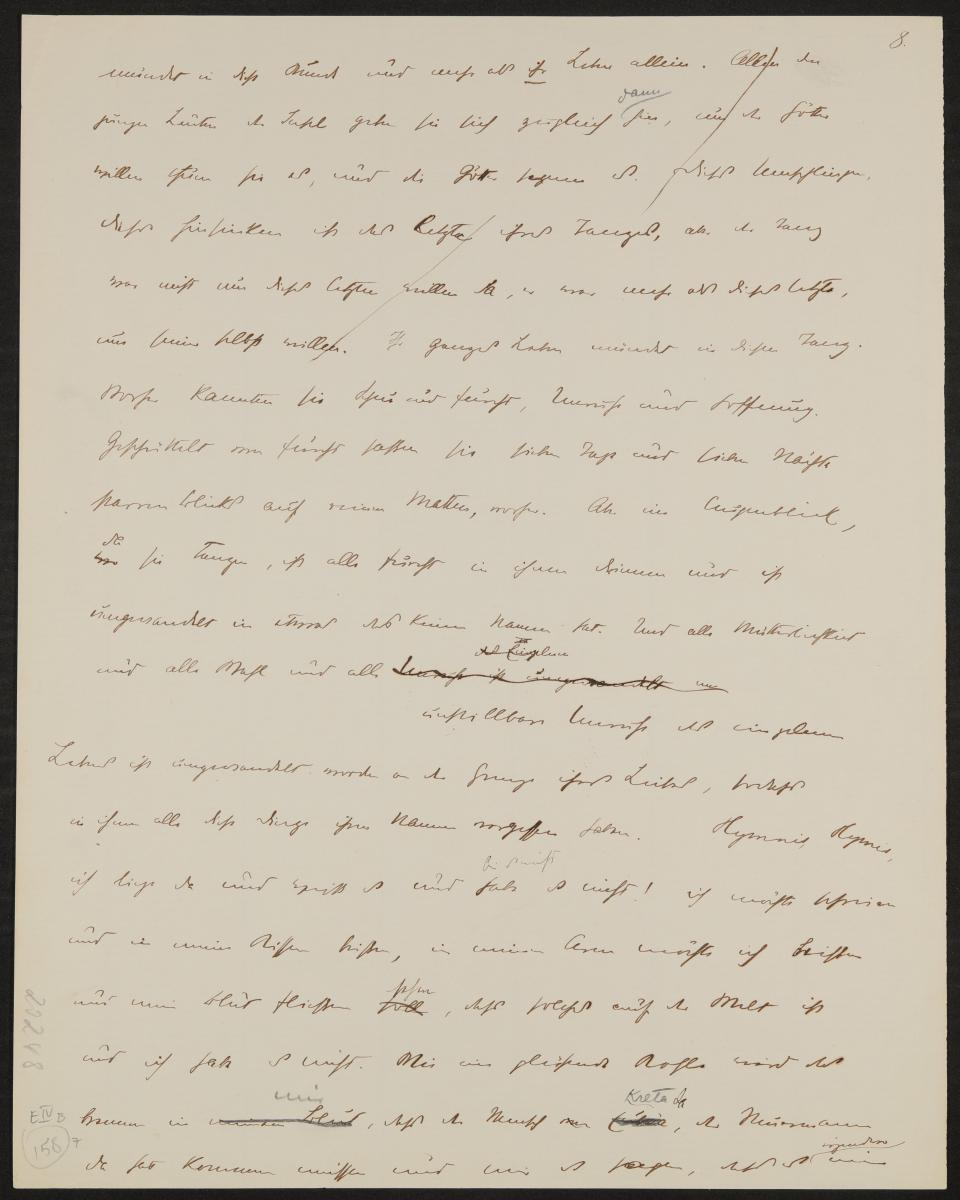 8.
mündet in diese Stunde und mehr als ihr Leben allein. Allen den
dann
jungen Leuten der Insel geben sie sich zugleich hin, um der Götter
willen thuen sie es, und die Götter segnen es. Dieses Umschlingen,
dieses Hinsinken ist das Letzte ihres Tanzes, aber der Tanz
war nicht um dieses letzten willen da, er war mehr als dieses letzte,
um seiner selbst willen. Ihr ganzes Leben mündet in diesen Tanz.
Vorher kannten sie Scheu und Furcht, Unruhe und Hoffnung.
Geschüttelt von Furcht saßen sie sieben Tage und sieben Nächte
starren Blicks auf reinen Matten, vorher. Aber im Augenblick,
da
wo sie tanzen, ist alle Furcht in ihnen drinnen und ist
umgewandelt in etwas das keinen Namen hat. Und alle Mütterlichkeit
des Einzelnen
und alle Wahl und alle Unruhe ist umgewandelt
unstillbare Unruhe des einzelnen
Lebens ist umgewandelt worden an der Grenze ihres Leibes, sodass
in ihnen alle diese Dinge ihren Namen vergessen haben. Hymnis, Hymnis,
bin es nicht
ich liege da und weiß es und habe es nicht! ich möchte schreien
und in meine Kissen beißen, in meinen Arm möchte ich beißen
sehen
und mein Blut fließen soll, dass solches auf der Welt ist
und ich habe es nicht. Wie eine glühende Kohle wird das
mir Kreta da
brennen in meinem Blut, dass der Mensch von, der Steuermann
irgendwo
da hat kommen müssen und mir es sagen, dass es eine
20248
E IV B
158 7